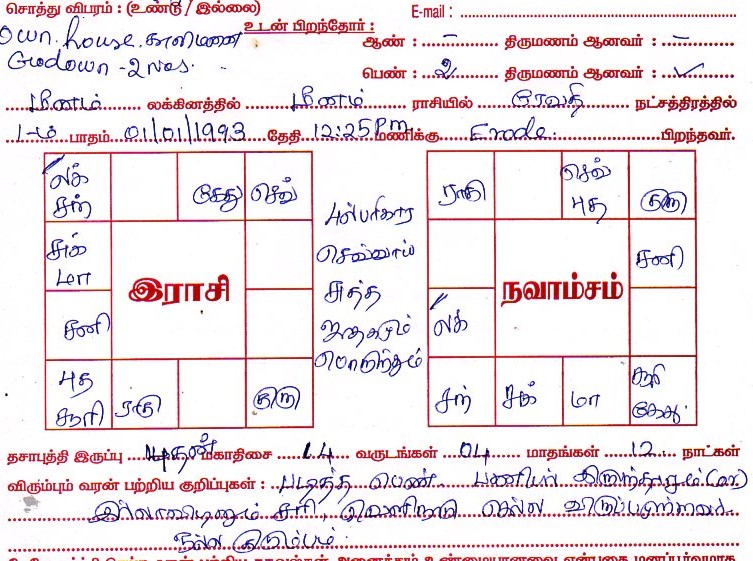 சொத்து விபரம் : (உண்டு / இல்லை)
E-mail :
own. house. காலிமனை
உடன் பிறந்தோர் :
Godown - 2 Nos.
ஆண் : – திருமணம் ஆனவர் : –
பெண் : 2 திருமணம் ஆனவர் : ✓
மீனம் லக்கினத்தில் மீனம் ராசியில் ரேவதி நட்சத்திரத்தில்
1-ம் பாதம் 01/01/1993 தேதி 12:25 Pm மணிக்கு Erode. பிறந்தவர்.
லக் சந்
கேது
செவ்
சுக் மா
இராசி
சனி
புத சூரி
ராகு
குரு
பரிகார
செவ்வாய்
சுத்த
ஜாதகமும்
பொருந்தும்
ராகு
செவ் புத
குரு
நவாம்சம்
சனி
லக்
சந்
சுக்
மா
சூரி கேது
தசாபுத்தி இருப்பு புதன் மகாதிசை 14 வருடங்கள் 04 மாதங்கள் 12 நாட்கள்
விரும்பும் வரன் பற்றிய குறிப்புகள் : படித்த பெண். பணியில் இருந்தாலும் (or)
இல்லாவிடினும் சரி, வெளிநாடு செல்ல விருப்பமுள்ளவர்.
நல்ல குடும்பம்.